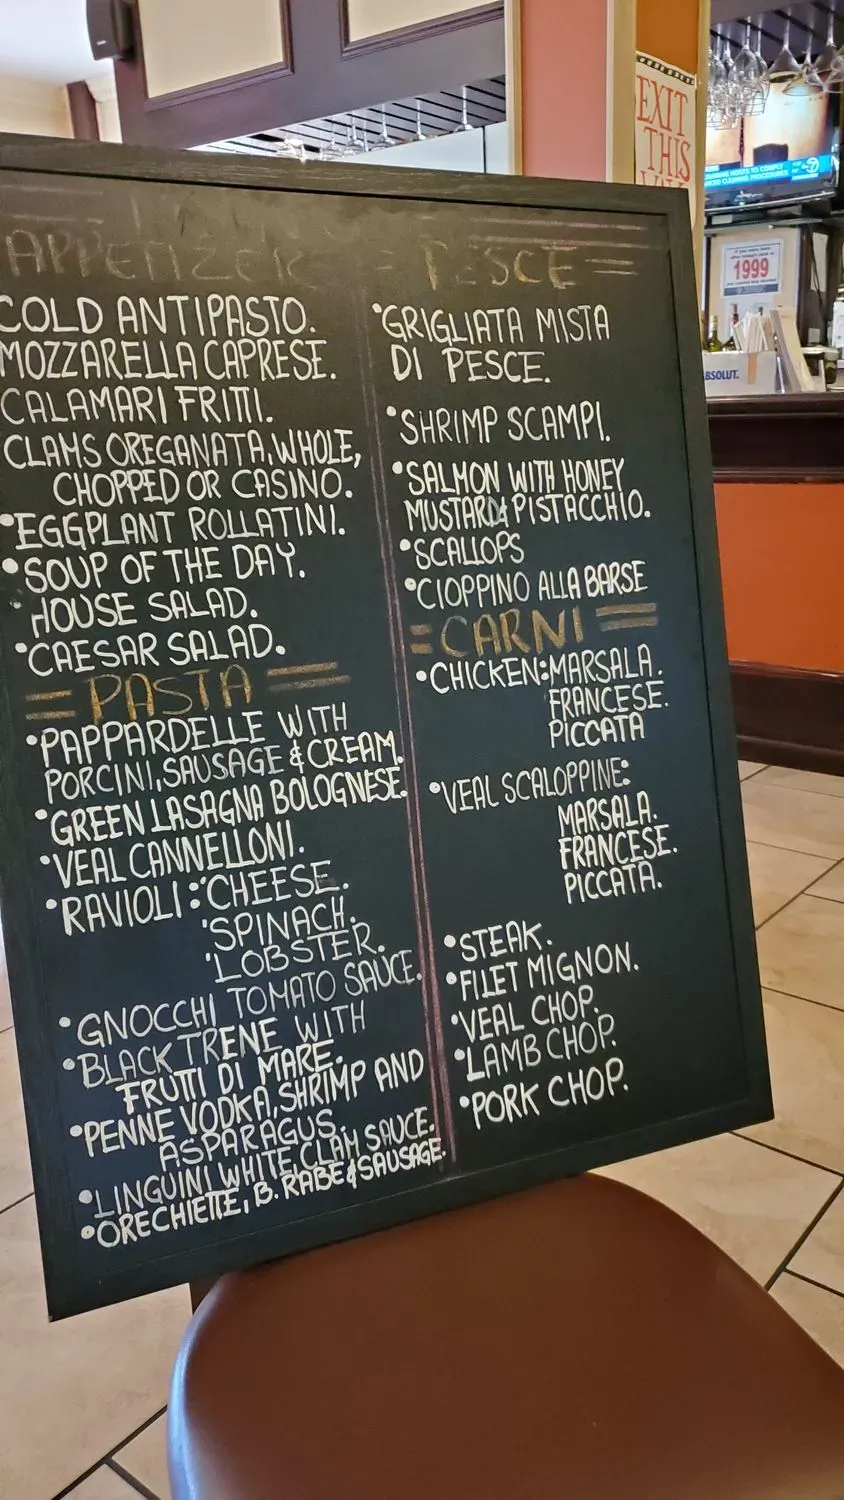 APPETIZER
COLD ANTIPASTO.
MOZZARELLA CAPRESE.
CALAMARI FRITTI.
CLAMS OREGANATA, WHOLE,
CHOPPED OR CASINO.
•EGGPLANT ROLLATINI.
•SOUP OF THE DAY.
HOUSE SALAD.
•CAESAR SALAD.
= PASTA =
•PAPPARDELLE WITH
PORCINI, SAUSAGE & CREAM.
•GREEN LASAGNA BOLOGNESE.
•VEAL CANNELLONI.
•RAVIOLI: •CHEESE.
•SPINACH.
•LOBSTER.
•GNOCCHI TOMATO SAUCE.
•BLACK TRENE WITH
FRUTTI DI MARE.
•PENNE VODKA, SHRIMP AND
ASPARAGUS.
•LINGUINI WHITE CLAM SAUCE.
•ORECHIETTE, B. RABE & SAUSAGE.
PESCE =
•GRIGLIATA MISTA
DI PESCE.
•SHRIMP SCAMPI.
•SALMON WITH HONEY
MUSTARD & PISTACCHIO.
•SCALLOPS
•CIOPPINO ALLA BARSE
= CARNI =
•CHICKEN: MARSALA.
FRANCESE.
PICCATA
•VEAL SCALOPPINE:
MARSALA.
FRANCESE.
PICCATA.
•STEAK.
•FILET MIGNON.
•VEAL CHOP.
•LAMB CHOP.
•PORK CHOP.
EXIT
THIS
WAY
1999
ABSOLUT.